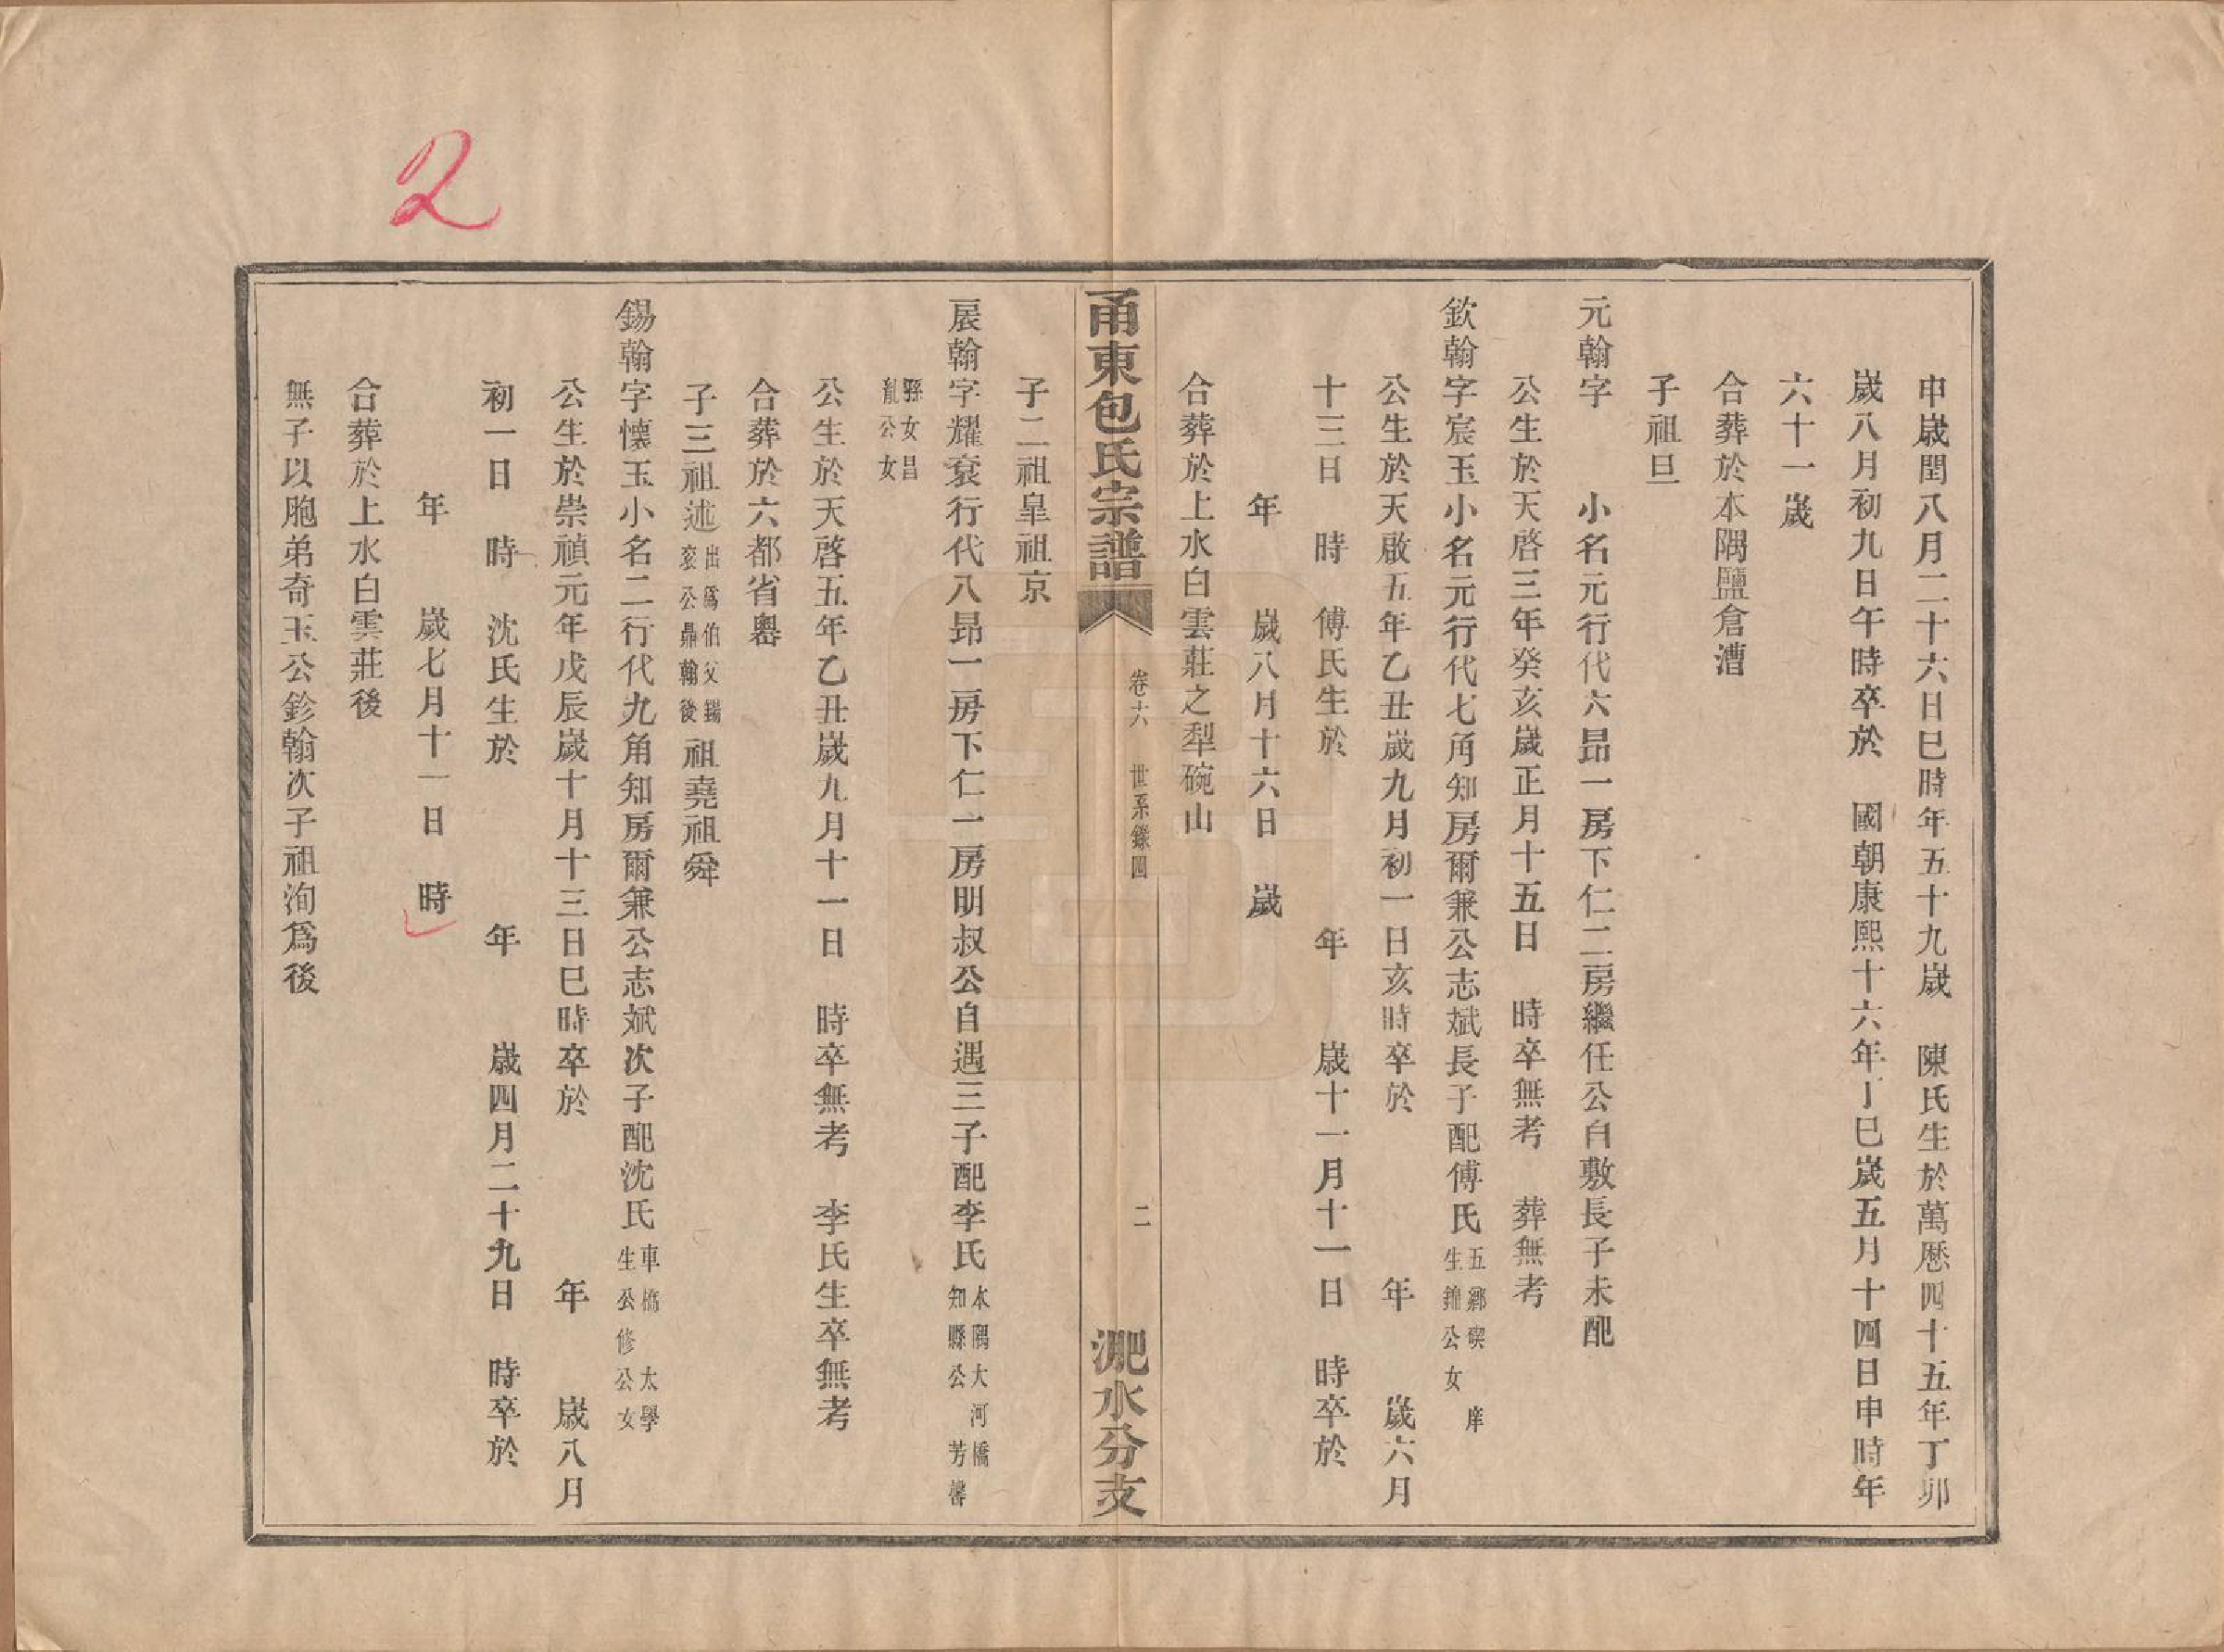 2
申歲閏八月二十六日巳時年五十九歲　陳氏生於萬厯四十五年丁卯
歲八月初九日午時卒於　國朝康熙十六年丁巳歲五月十四日申時年
六十一歲
合葬於本隅鹽倉漕
子祖旦
元翰字　　小名元行代六昂一房下仁二房繼任公自敷長子未配
公生於天啓三年癸亥歲正月十五日　時卒無考　葬無考
欽翰字宸玉小名元行代七角知房爾兼公志斌長子配傅氏五鄉碶庠生錦公女
公生於天啟五年乙丑歲九月初一日亥時卒於　　　　年　　歲六月
十三日　時　傅氏生於　　　　年　　歲十一月十一日　時卒於
年　　歲八月十六日　歲
合葬於上水白雲莊之犁碗山
甬東包氏宗譜　卷六　世系錄圖　二　淝水分支
子二祖皐祖京
扆翰字耀袞行代八昂一房下仁一房明叔公自遇三子配李氏本隅大河橋知縣公芳馨
縣女昌胤公女
公生於天啓五年乙丑歲九月十一日　時卒無考　李氏生卒無考
合葬於六都省嶴
子三祖述出爲伯父錫袞公鼎翰後祖堯祖舜
錫翰字懷玉小名二行代九角知房爾兼公志斌次子配沈氏車橋太學生公修公女
公生於崇禎元年戊辰歲十月十三日巳時卒於　　　　年　　歲八月
初一日　時　沈氏生於　　　　年　　歲四月二十九日　時卒於
年　　歲七月十一日　時
合葬於上水白雲莊後
無子以胞弟奇玉公鉁翰次子祖洵爲後